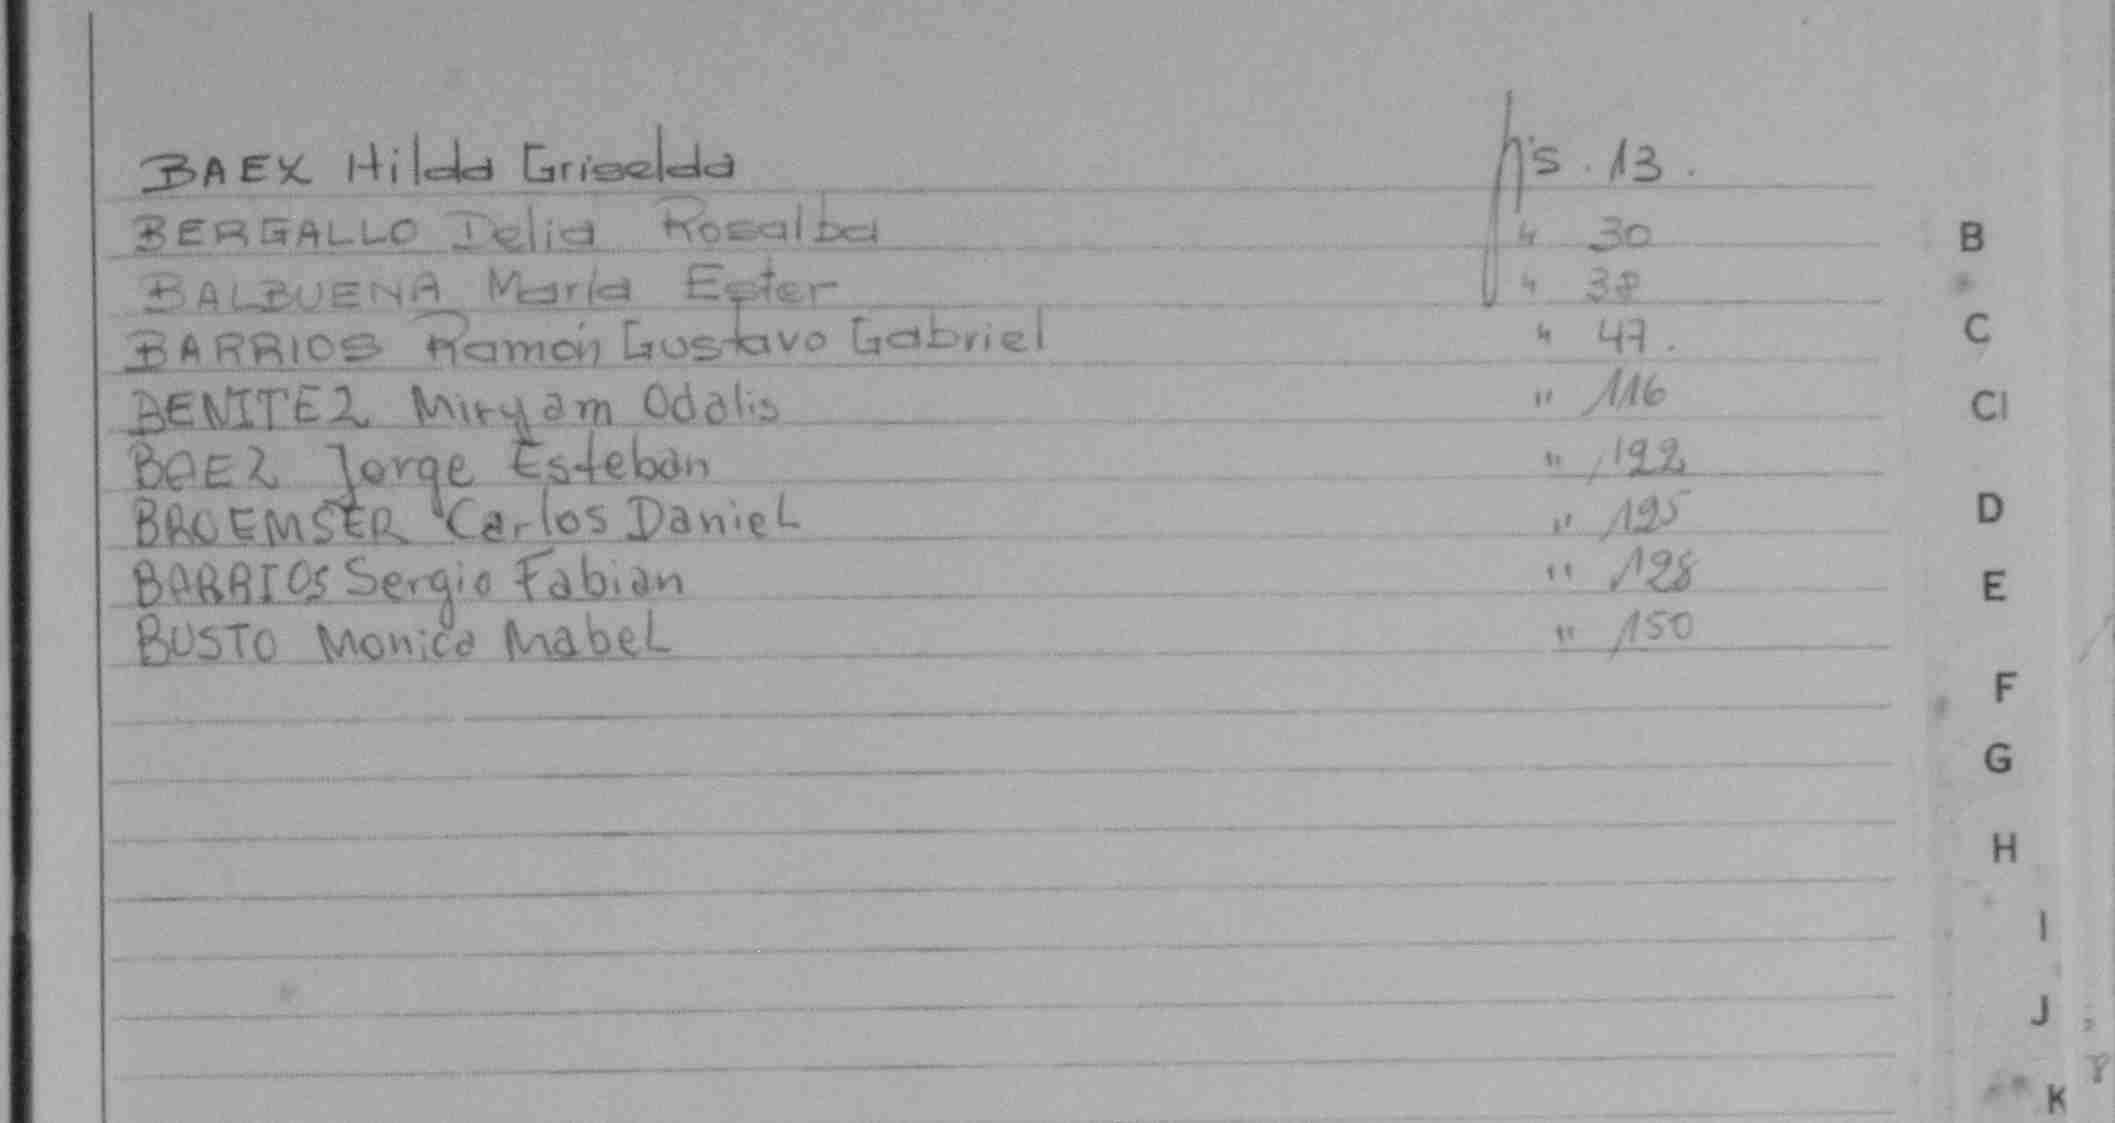 BAEX Hilda Griselda fs. 13.
BERGALLO Delia Rosalba " 30
BALBUENA María Ester " 38
BARRIOS Ramón Gustavo Gabriel " 47.
BENITEZ Miryam Odalis " 116
BAEZ Jorge Esteban " 122
BROEMSER Carlos Daniel " 125
BARRIOS Sergio Fabian " 128
BUSTO Monica Mabel " 150
B
C
CI
D
E
F
G
H
I
J
K